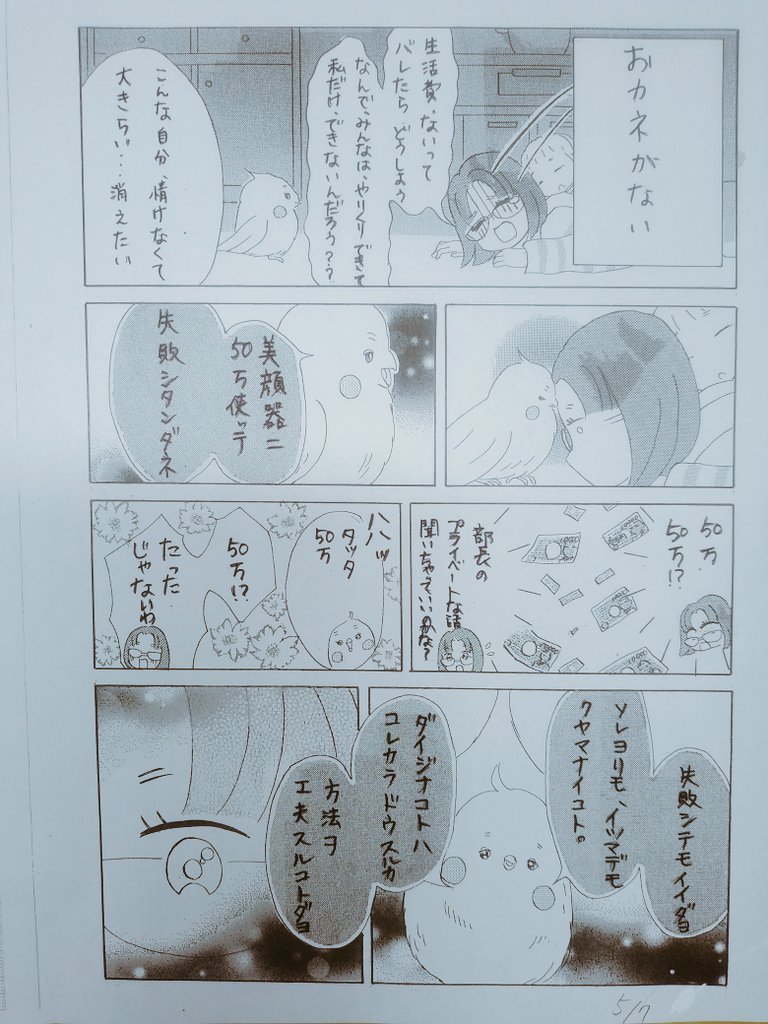 おカネがない
生活費、ないって
バレたら どうしよう
なんで、みんなは、やりくりできて
私だけ、できないんだろう??
こんな自分、情けなくて
大きらい…消えたい
美顔器ニ
50万使ッテ
失敗シタンダネ
50万
50万!?
部長の
プライベートな話
聞いちゃっていいのかな?
ハハッ
タッタ
50万
50万!?
たった
じゃないわ
失敗シテモイイダヨ
ソレヨリモ、イツマデモ
クヤマナイコトの
ダイジナコトハ
コレカラドウスルカ
方法ヲ
工夫スルコトダヨ
5/7